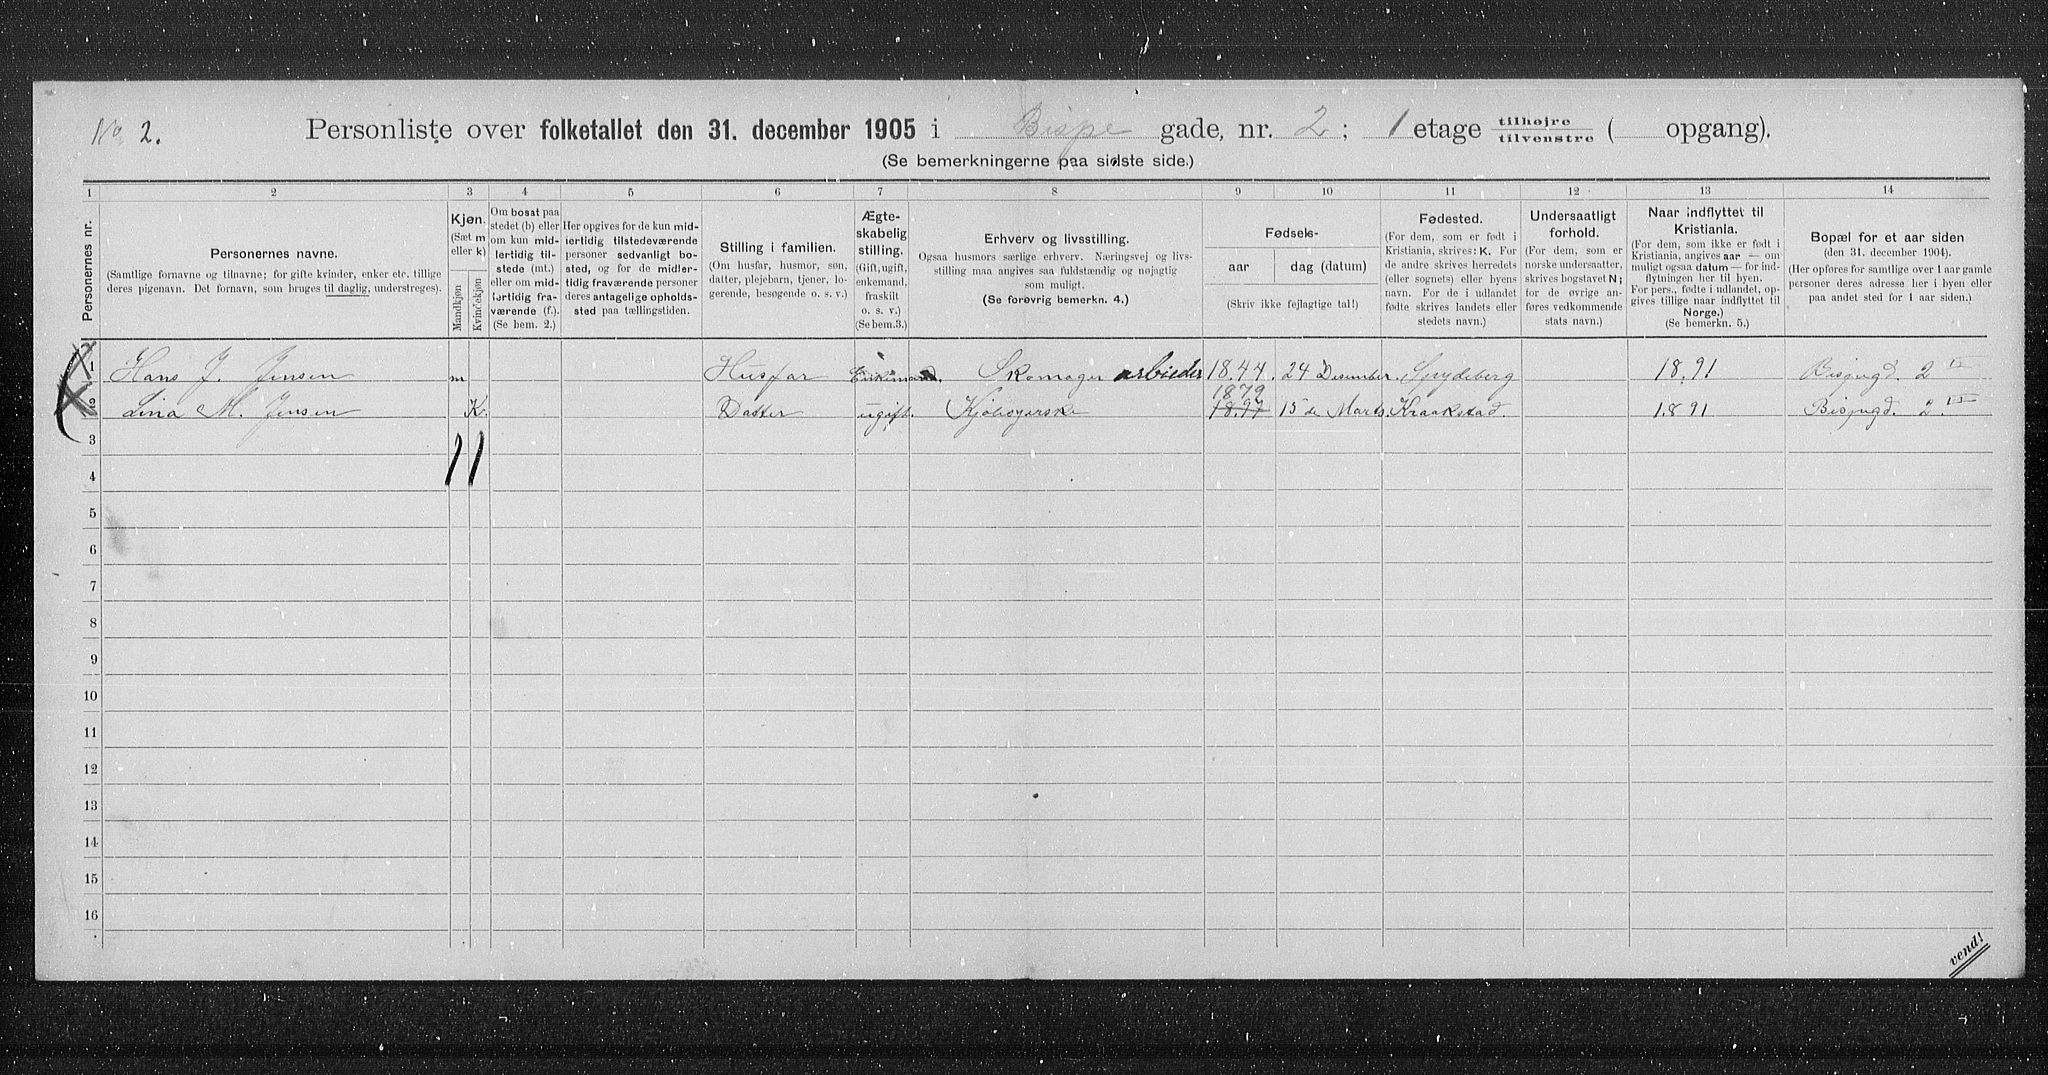 No. 2.
Personliste over folketallet den 31. december 1905 i Bispe gade, nr. 2; 1 etage tilhøjre tilvenstre ( opgang).
(Se bemerkningerne paa sidste side.)
1 2 3 4 5 6 7 8 9 10 11 12 13 14
Personernes nr.
Personernes navne.
(Samtlige fornavne og tilnavne; for gifte kvinder, enker etc. tillige
deres pigenavn. Det fornavn, som bruges til daglig, understreges).
Kjøn.
(Sæt m
eller k)
Mandkjøn
Kvindekjøn
Om bosat paa
stedet (b) eller
om kun mid-
lertidig til-
stede (mt.)
eller om mid-
lertidig fra-
værende (f.).
(Se bem. 2.)
Her opgives for de kun mid-
lertidig tilstedeværende
personer sedvanlig bo-
sted, og for de midler-
tidig fraværende personer
deres antagelige opholds-
sted paa tællingstiden.
Stilling i familien.
(Om husfar, husmor, søn,
datter, plejebarn, tjener, lo-
gerende, besøgende o. s. v.)
Ægte-
skabelig
stilling.
(Gift, ugift,
enkemand,
fraskilt
o. s. v.)
(Se bem. 3.)
Erhverv og livsstilling.
Ogsaa husmors særlige erhverv. Næringsvej og livs-
stilling maa angives saa fuldstændig og nøjagtig
som muligt.
(Se forøvrig bemerkn. 4.)
Fødsels-
aar dag (datum)
(Skriv ikke fejlagtige tal!)
Fødested.
(For dem, som er født i
Kristiania, skrives: K. For
de andre skrives herredets
(eller sognets) eller byens
navn. For de i udlandet
fødte skrives landets eller
stedets navn.)
Undersaatligt
forhold.
(For dem, som er
norske undersaatter,
skrives bogstavet N;
for de øvrige an-
føres vedkommende
stats navn.)
Naar indflyttet til
Kristiania.
(For dem, som ikke er født i
Kristiania, angives aar — om
muligt ogsaa datum — for ind-
flytningen her til byen.
For pers., fødte i udlandet, op-
gives tillige naar indflyttet til
Norge.)
(Se bemerkn. 5.)
Bopæl for et aar siden
(den 31. december 1904).
(Her opføres for samtlige over 1 aar gamle
personer deres adresse her i byen eller
paa andet sted for 1 aar siden.)
1 Hans J. Jensen m Husfar Enkemand. Skomager arbeider 1844. 24 Desember. Spydeberg 1891 Bispegd. 2 IV
1879
2 Lina M. Jensen K. Datter ugift. Kjolesyerske 15de Marts. Kraakstad. 1891 Bispegd. 2. IV
3
1 1
4
5
6
7
8
9
10
11
12
13
14
15
16
vend!